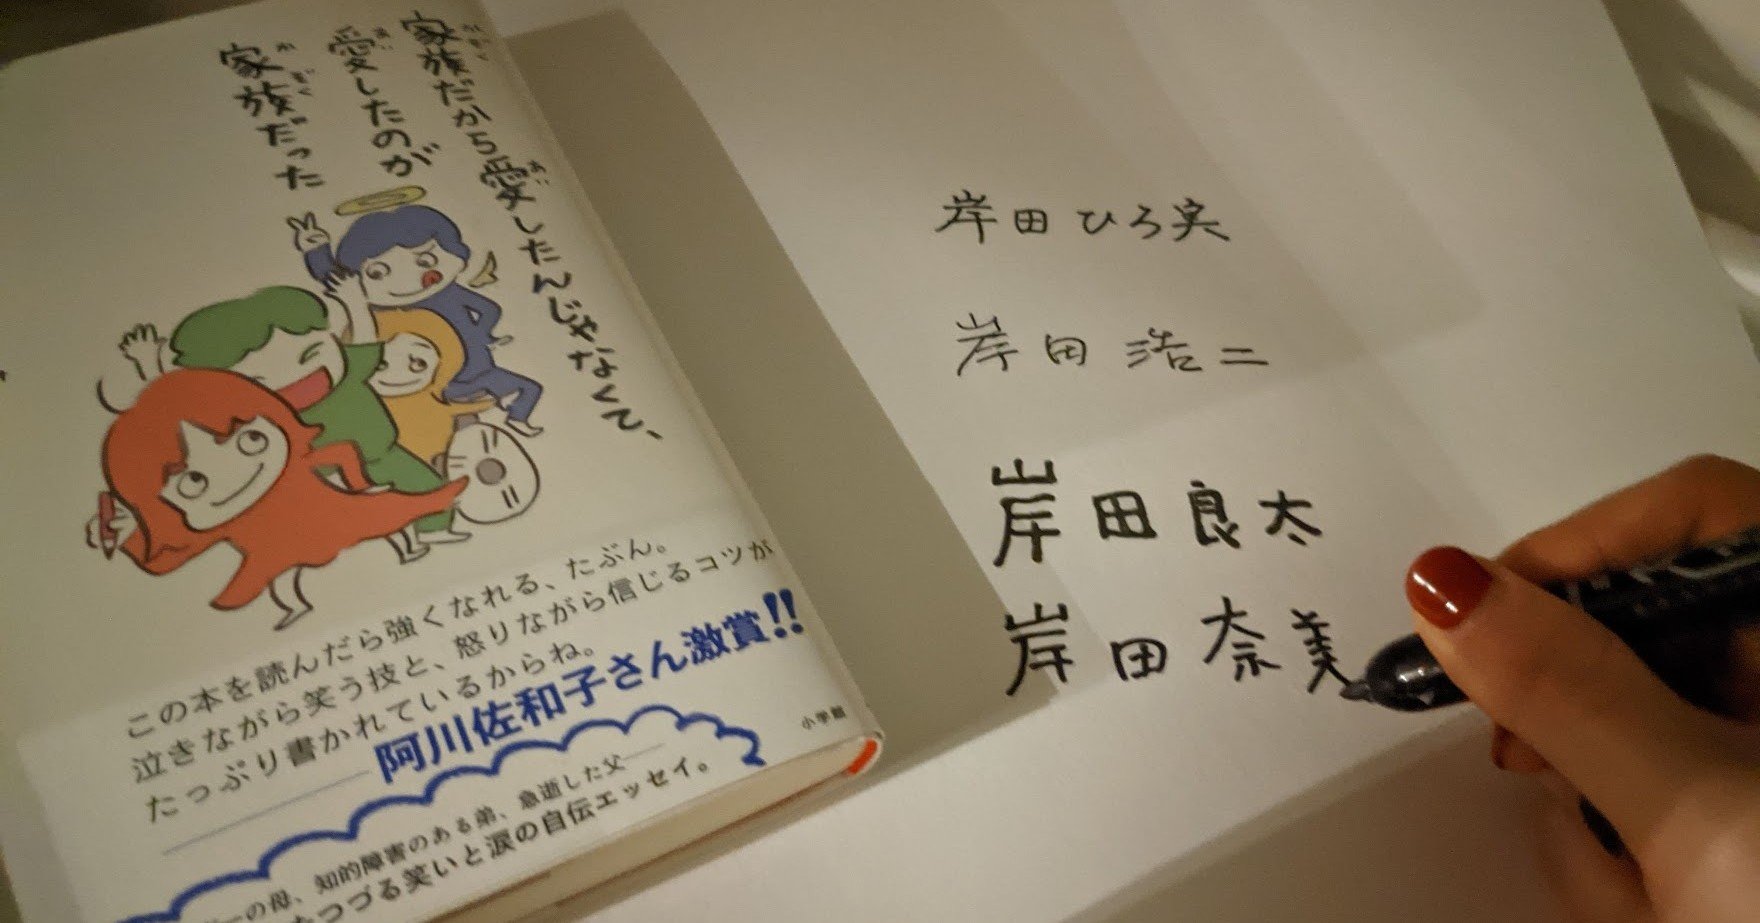 家族だから愛したんじゃなくて、
愛したのが
家族だった
この本を読んだら強くなれる、たぶん。
泣きながら笑う技と、怒りながら信じるコツが
たっぷり書かれているからね。
阿川佐和子さん激賞!!
小学館
ーの母、知的障害のある弟、急逝した父——
つづる笑いと涙の自伝エッセイ。
岸田ひろ実
岸田浩二
岸田良太
岸田奈美